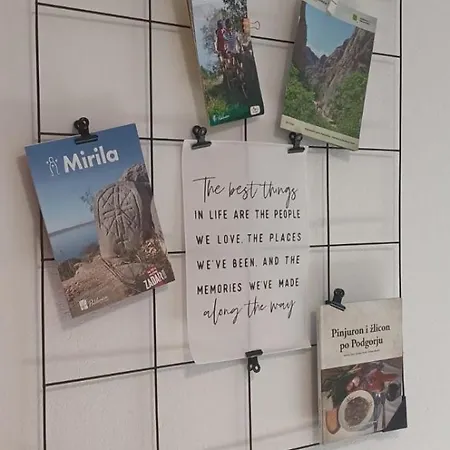 Mirila
ZADAR
The best things
IN LIFE ARE THE PEOPLE
WE LOVE, THE PLACES
WE'VE BEEN, AND THE
MEMORIES WE'VE MADE
along the way
Pinjuron i žlicon
po Podgorju